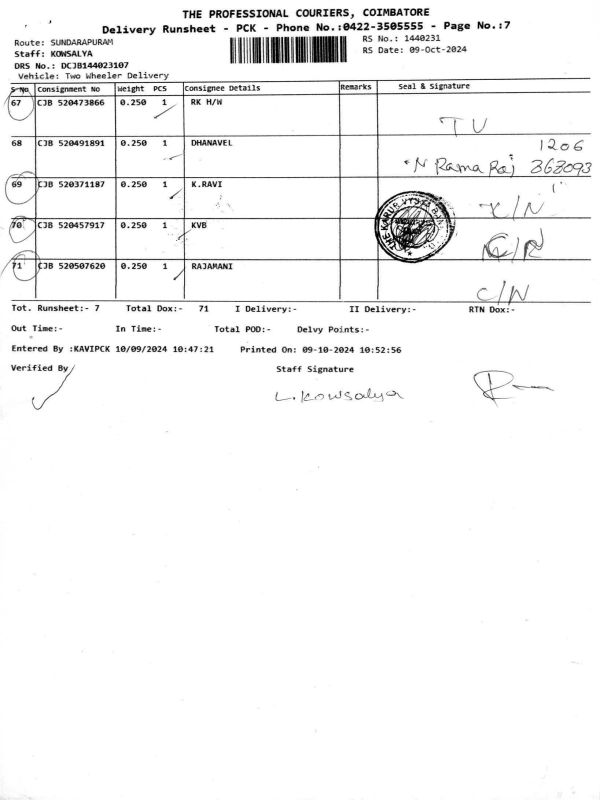 THE PROFESSIONAL COURIERS, COIMBATORE
Delivery Runsheet - PCK - Phone No.:0422-3505555 - Page No.:7
Route: SUNDARAPURAM
RS No.: 1440231
Staff: KOWSALYA
RS Date: 09-Oct-2024
DRS No.: DCJB144023107
Vehicle: Two Wheeler Delivery
S No Consignment No Weight PCS Consignee Details Remarks Seal & Signature
67 CJB 520473866 0.250 1 RK H/W
TU
68 CJB 520491891 0.250 1 DHANAVEL
1206
N Rama Raj 363093
69 CJB 520371187 0.250 1 K.RAVI
"
70 CJB 520457917 0.250 1 KVB
THE KARUR VYSYA
71 CJB 520507620 0.250 1 RAJAMANI
C/N
Tot. Runsheet:- 7 Total Dox:- 71 I Delivery:- II Delivery:- RTN Dox:-
Out Time:- In Time:- Total POD:- Delvy Points:-
Entered By :KAVIPCK 10/09/2024 10:47:21 Printed On: 09-10-2024 10:52:56
Verified By Staff Signature
L. Kowsalya